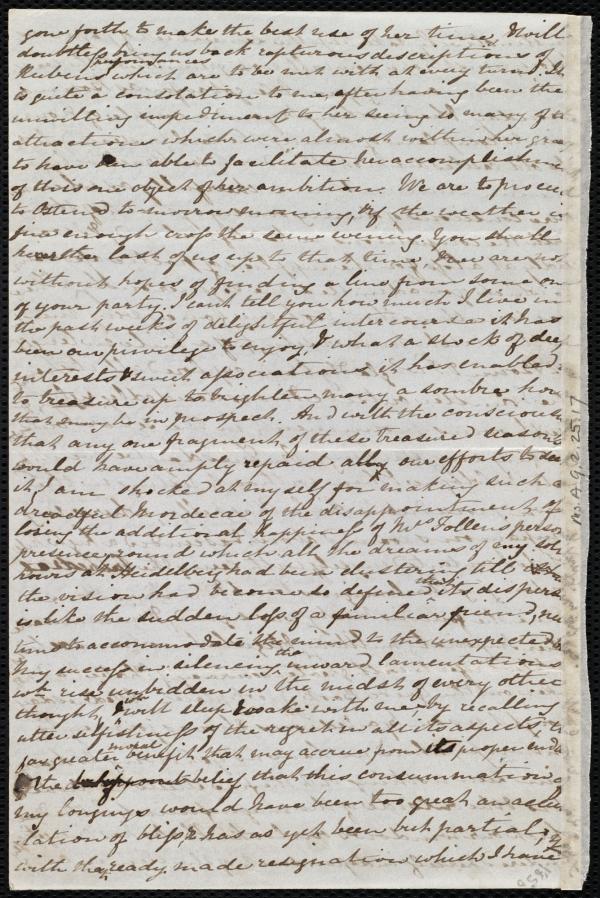 gone forth to make the best use of her time, & will
doubtless bring us back rapturous descriptions of
Rubens performances which are to be met with at every turn. It
is quite a consolation to me, after having been the
unwilling impediment to her seeing so many of the
attractions which were almost within her gra
to have been able to facilitate her accomplishm
of this one object of her ambition. We are to procee
to Ostend to-morrow morning, & if the weather is
fine enough cross the same evening. You shall
hear the last of us up to that time, & we are not
without hopes of finding a line from some one
of your party. I can't tell you how much I live in
the past weeks of delightful intercourse it has
been our privilege to enjoy, & what a stock of deep
interests & sweet associations it has enabled
to treasure up to brighten many a sombre hour
that may be in prospect. And with the conscious
that any one fragment of these treasured seasons
would have amply repaid all our efforts to
it, I am shocked at myself for making such a
dreadful Mordecai of the disappointment of
losing the additional happiness of Mrs Follen's perso
presence, round which all the dreams of my
hours at Heidelberg had been clustering till
the vision had become so defined that its dispers
is like the sudden loss of a familiar friend, no
time to accommodate the mind to the unexpected
My success in silencing the inward lamentations
wh. rise unbidden in the midst of every other
thought, & will sleep & wake with me, by recalling
utter selfishness of the regret in all its aspects, the
far greater moral benefit that may accrue from its proper
& the belief that this consummation of
my longings would have been too great an accu
lation of bliss, & has as yet been but partial, &
with the ready made resignation which I have
Ms.A.9.2.25.17